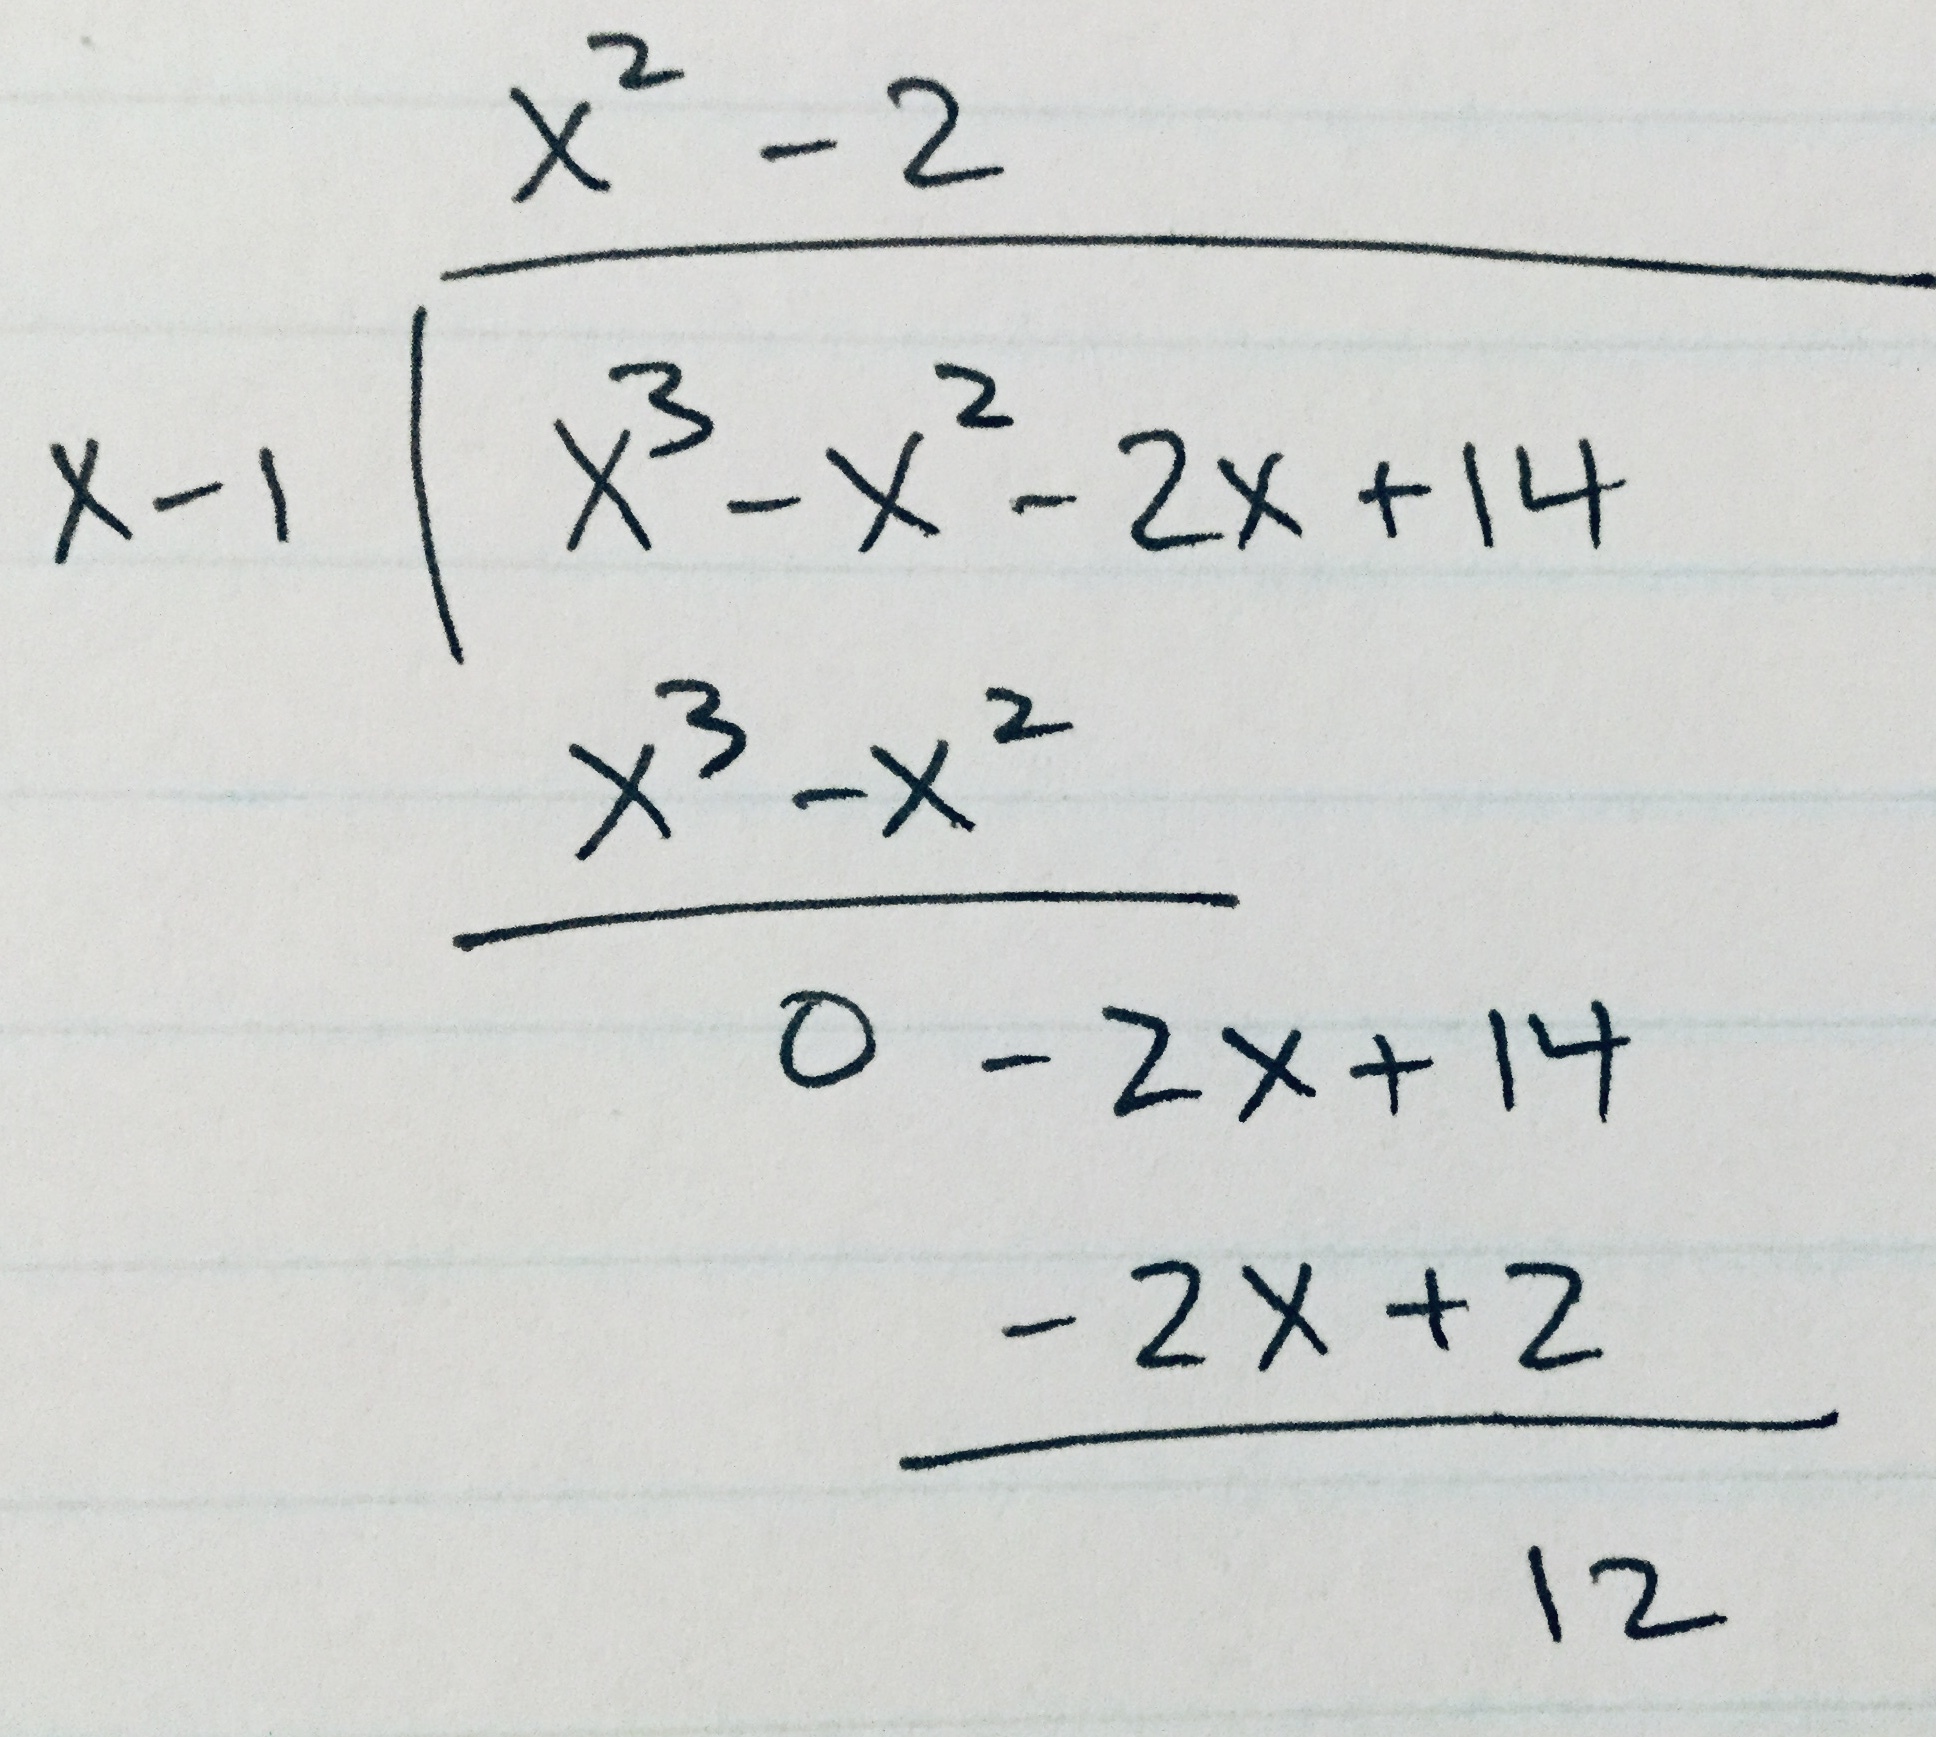 x² - 2
x - 1 | x³ - x² - 2x + 14
x³ - x²
0 - 2x + 14
- 2x + 2
12